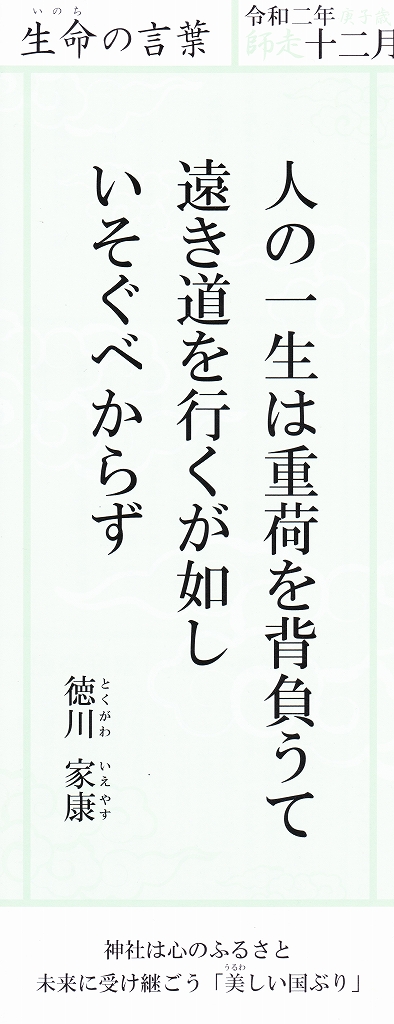 いのち
生命の言葉
令和二年 庚子歳
師走 十二月
人の一生は重荷を背負うて
遠き道を行くが如し
いそぐべからず
とくがわ いえやす
徳川 家康
神社は心のふるさと
うるわ
未来に受け継ごう「美しい国ぶり」